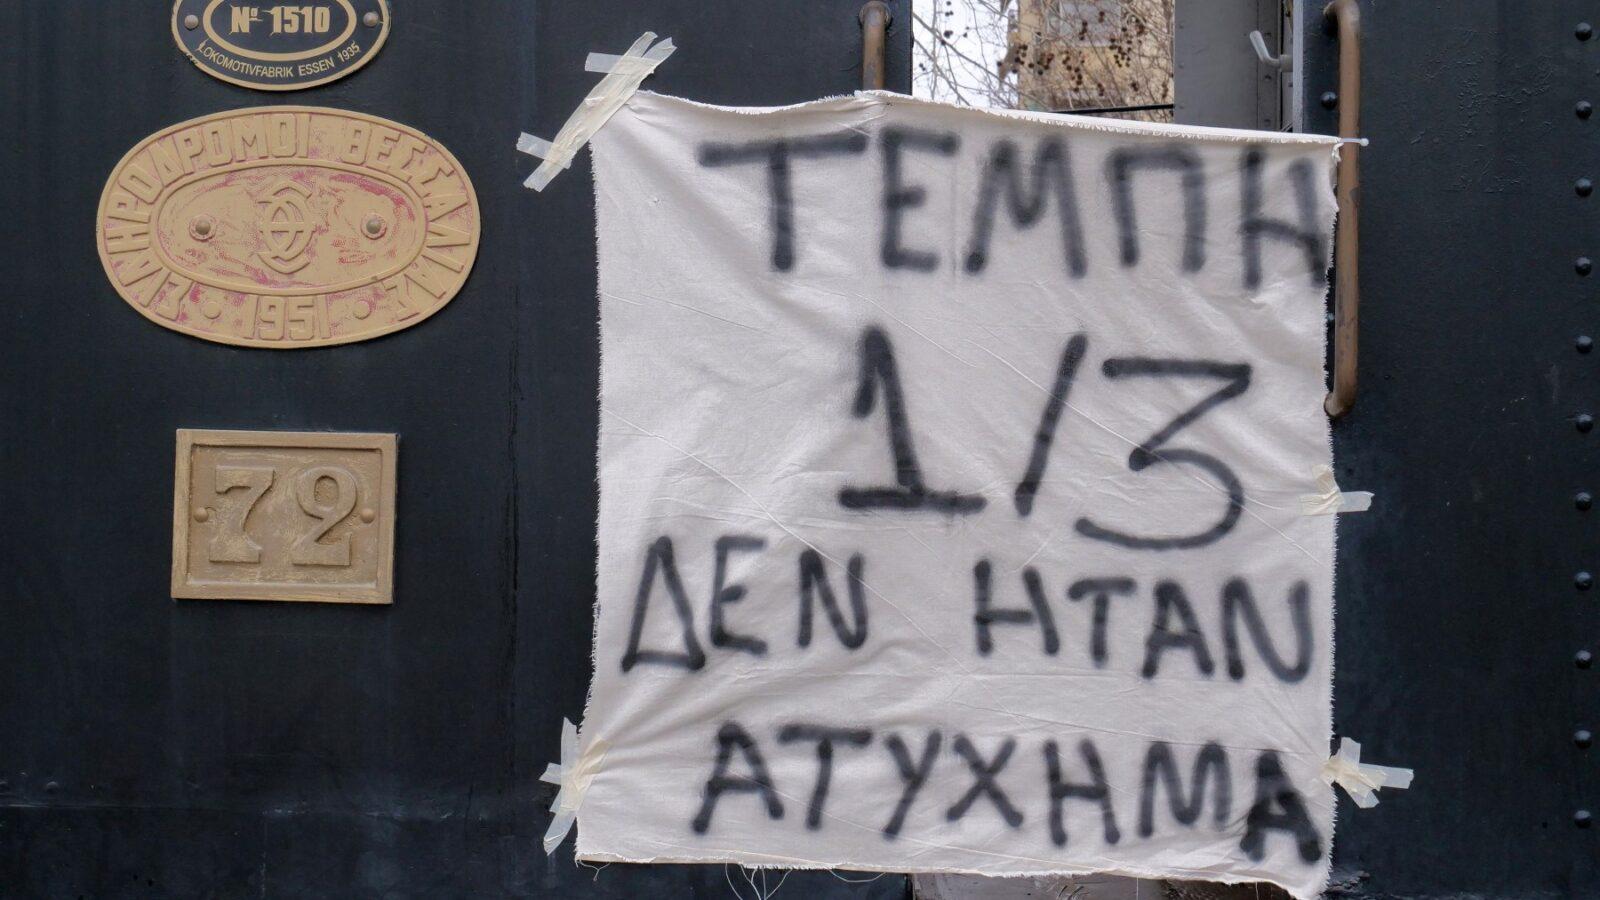 Nº 1510
LOKOMOTIVFABRIK ESSEN 1935
ΣΙΔΗΡΟΔΡΟΜΟΙ ΘΕΣΣΑΛΙΑΣ
1951
72
ΤΕΜΠΗ
1/3
ΔΕΝ ΗΤΑΝ
ΑΤΥΧΗΜΑ